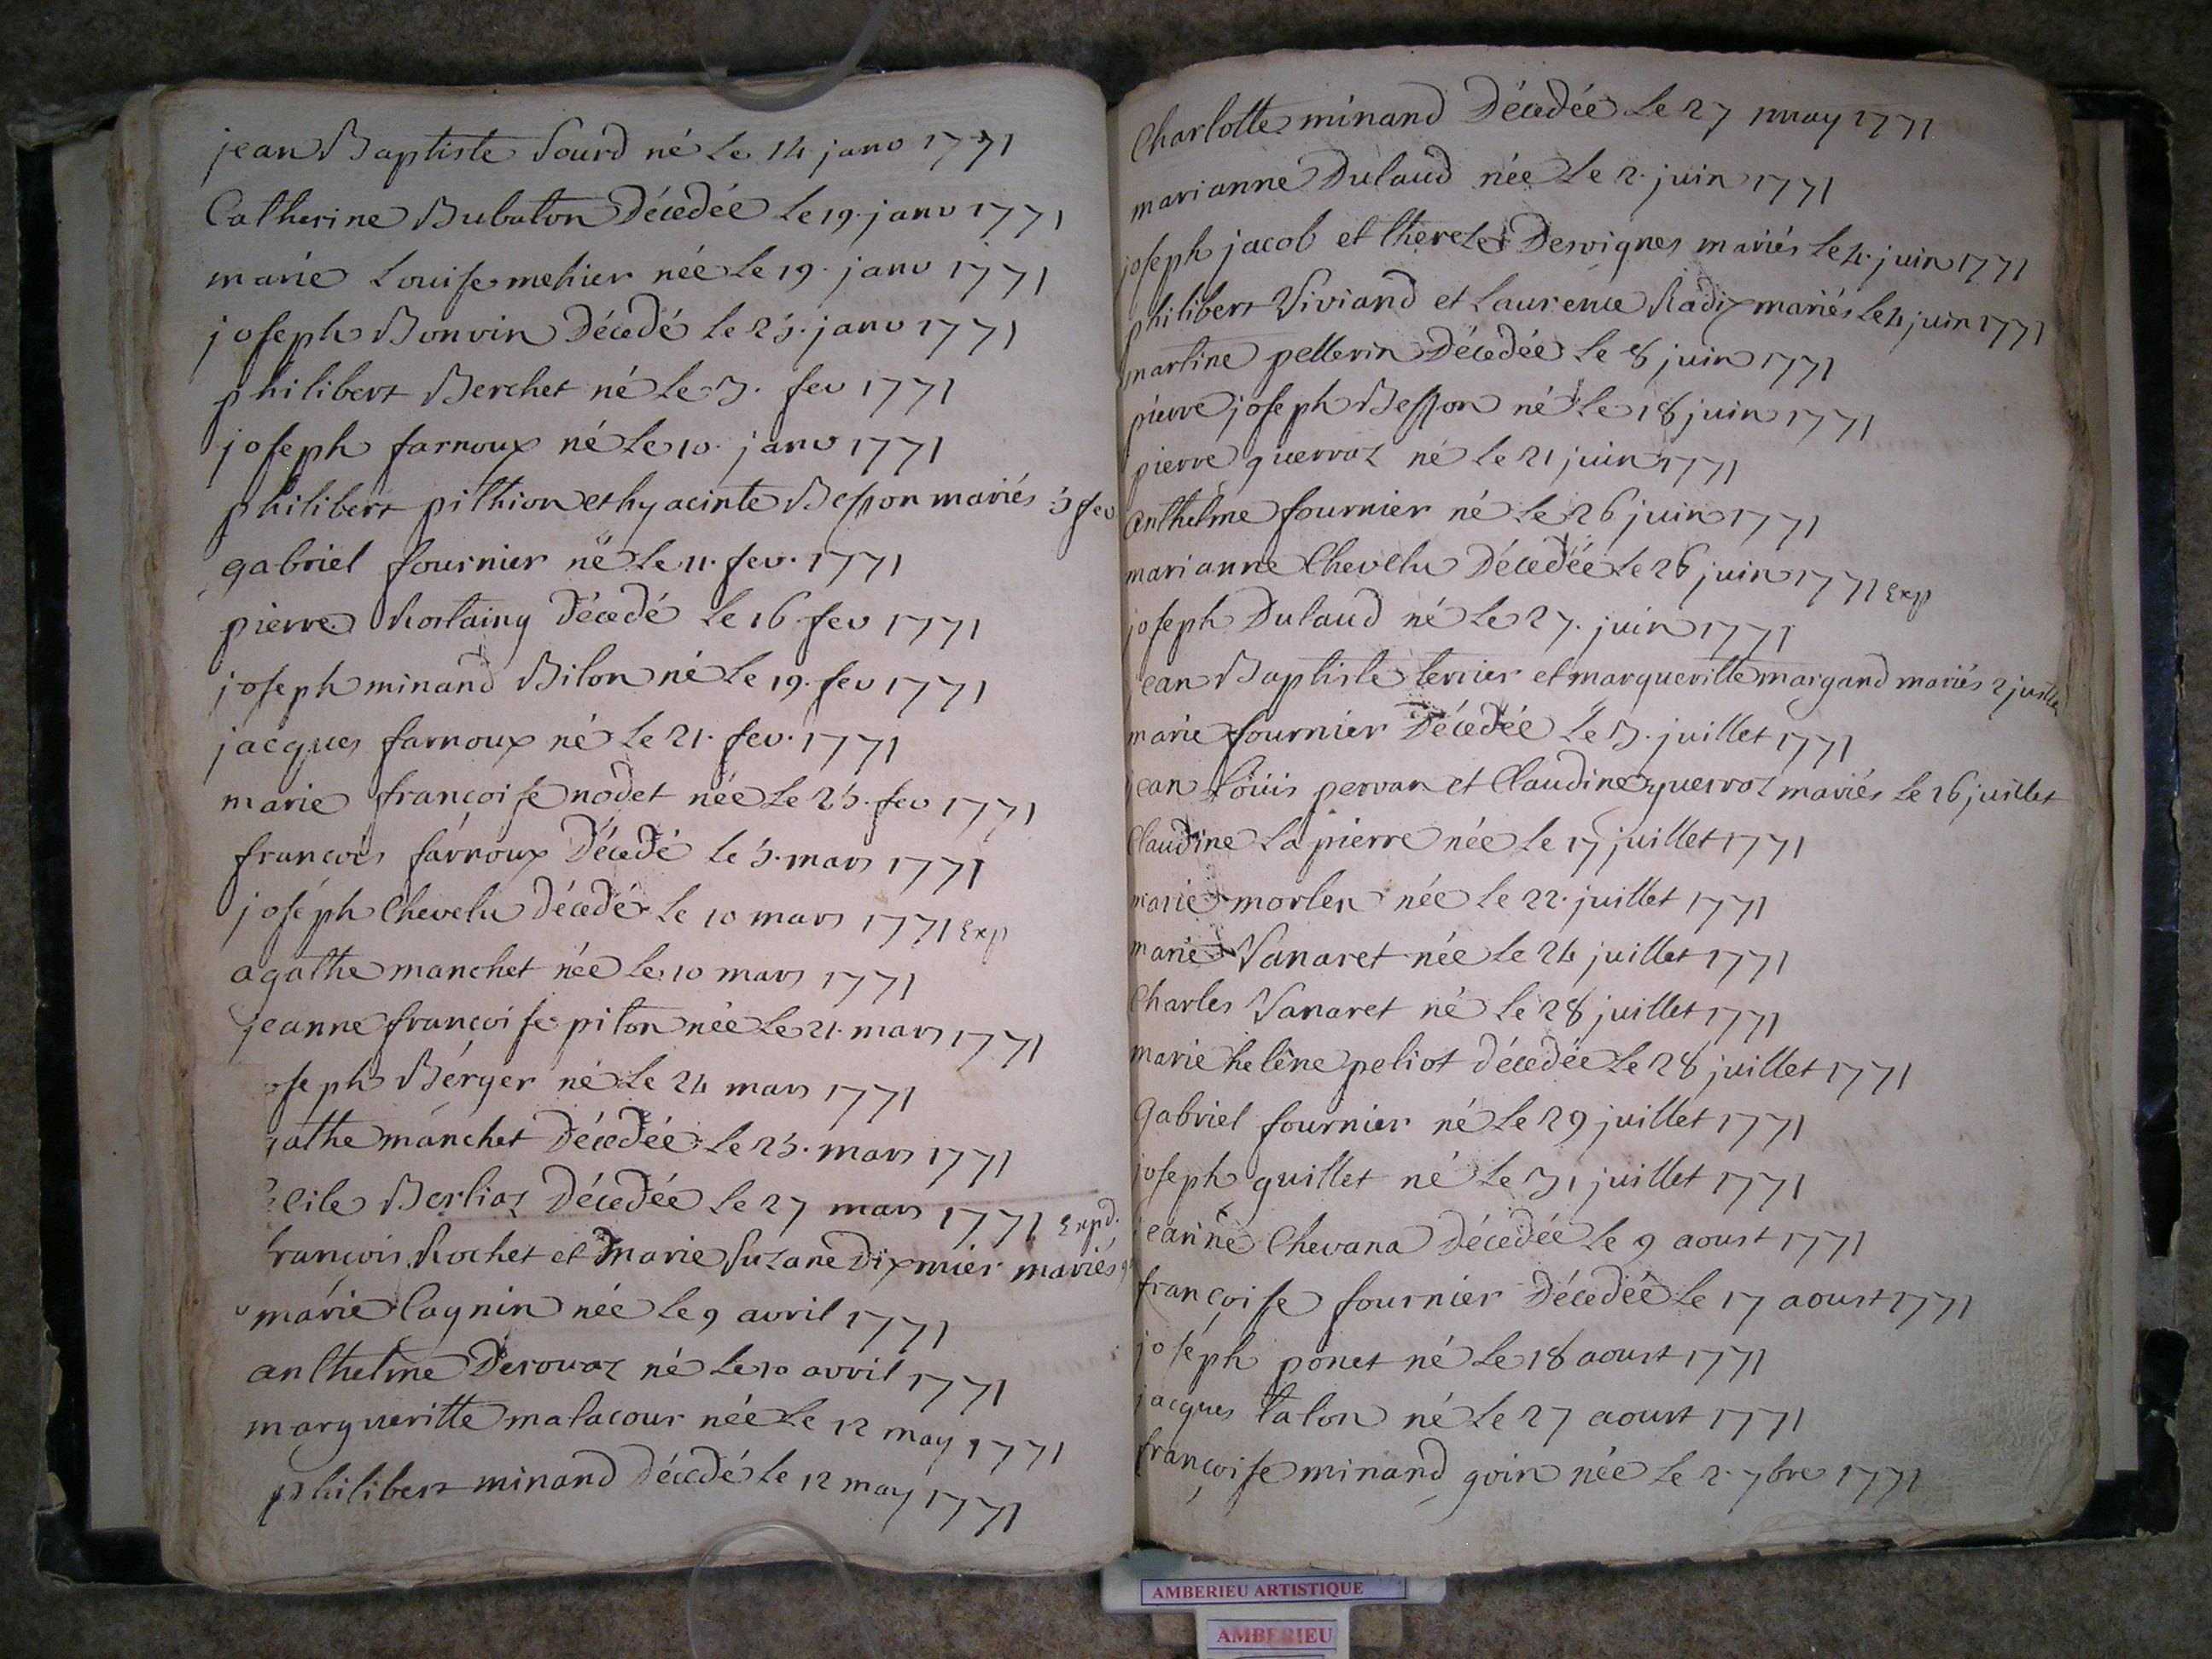 jean Baptiste Sourd né Le 14 janv 1771
Catherine Bubaton Décedée Le 19 janv 1771
marie Louise mehier née Le 19 janv 1771
joseph Bonvin Décedé Le 25 janv 1771
philibert Berchet né Le 3 fev 1771
joseph farnoux né Le 10 janv 1771
philibert pithion et hyacinte Besson mariés 5 fev
gabriel fournier né Le 11 fev. 1771
pierre Rostaing Décedé Le 16 fev 1771
joseph minand Bilon né Le 19 fev 1771
jacques farnoux né Le 21 fev. 1771
marie françoise nodet née Le 25 fev 1771
françois farnoux Décedé Le 5 mars 1771
joseph Chevelu Décedé Le 10 mars 1771 Exp
agathe manchet née Le 10 mars 1771
jeanne françoise piton née Le 21 mars 1771
oseph Berger né Le 24 mars 1771
gathe manchet Décedée Le 25 mars 1771
cile Berlioz Décedée Le 27 mars 1771 Expd.
françois Rochet et Marie Suzane Dixmier mariés
marie Cagnin née Le 9 avril 1771
anthelme Derouaz né Le 10 avril 1771
margueritte malacour née Le 12 may 1771
philibert minand Décedé Le 12 may 1771
Charlotte minand Décedée Le 27 may 1771
marianne Dulaud née Le 2 juin 1771
joseph jacob et therese Desvignes mariés Le 4 juin 1771
philibert Viviand et Laurence Radix mariés Le 4 juin 1771
martine pellerin Décedée Le 8 juin 1771
pierre joseph Besson né Le 18 juin 1771
pierre querroz né Le 21 juin 1771
anthelme fournier né Le 26 juin 1771
marianne Chevelu Décedée Le 26 juin 1771 Exp
joseph Dulaud né Le 27 juin 1771
jean Baptiste terrier et margueritte margand mariés 2 juillet
marie fournier Décedée Le 3 juillet 1771
jean Louis pervan et Claudine querroz mariés Le 16 juillet
Claudine La pierre née Le 17 juillet 1771
marie morlen née Le 22 juillet 1771
marie Vanaret née Le 24 juillet 1771
Charles Vanaret né Le 28 juillet 1771
marie helêne peliot décedée Le 28 juillet 1771
Gabriel fournier né Le 29 juillet 1771
joseph guillet né Le 31 juillet 1771
jeanne Chevana Décedée Le 9 aoust 1771
françoise fournier Décedée Le 17 aoust 1771
joseph ponet né Le 18 aoust 1771
jacques talon né Le 27 aoust 1771
françoise minand goin née Le 2. 7bre 1771
AMBERIEU ARTISTIQUE
AMBERIEU